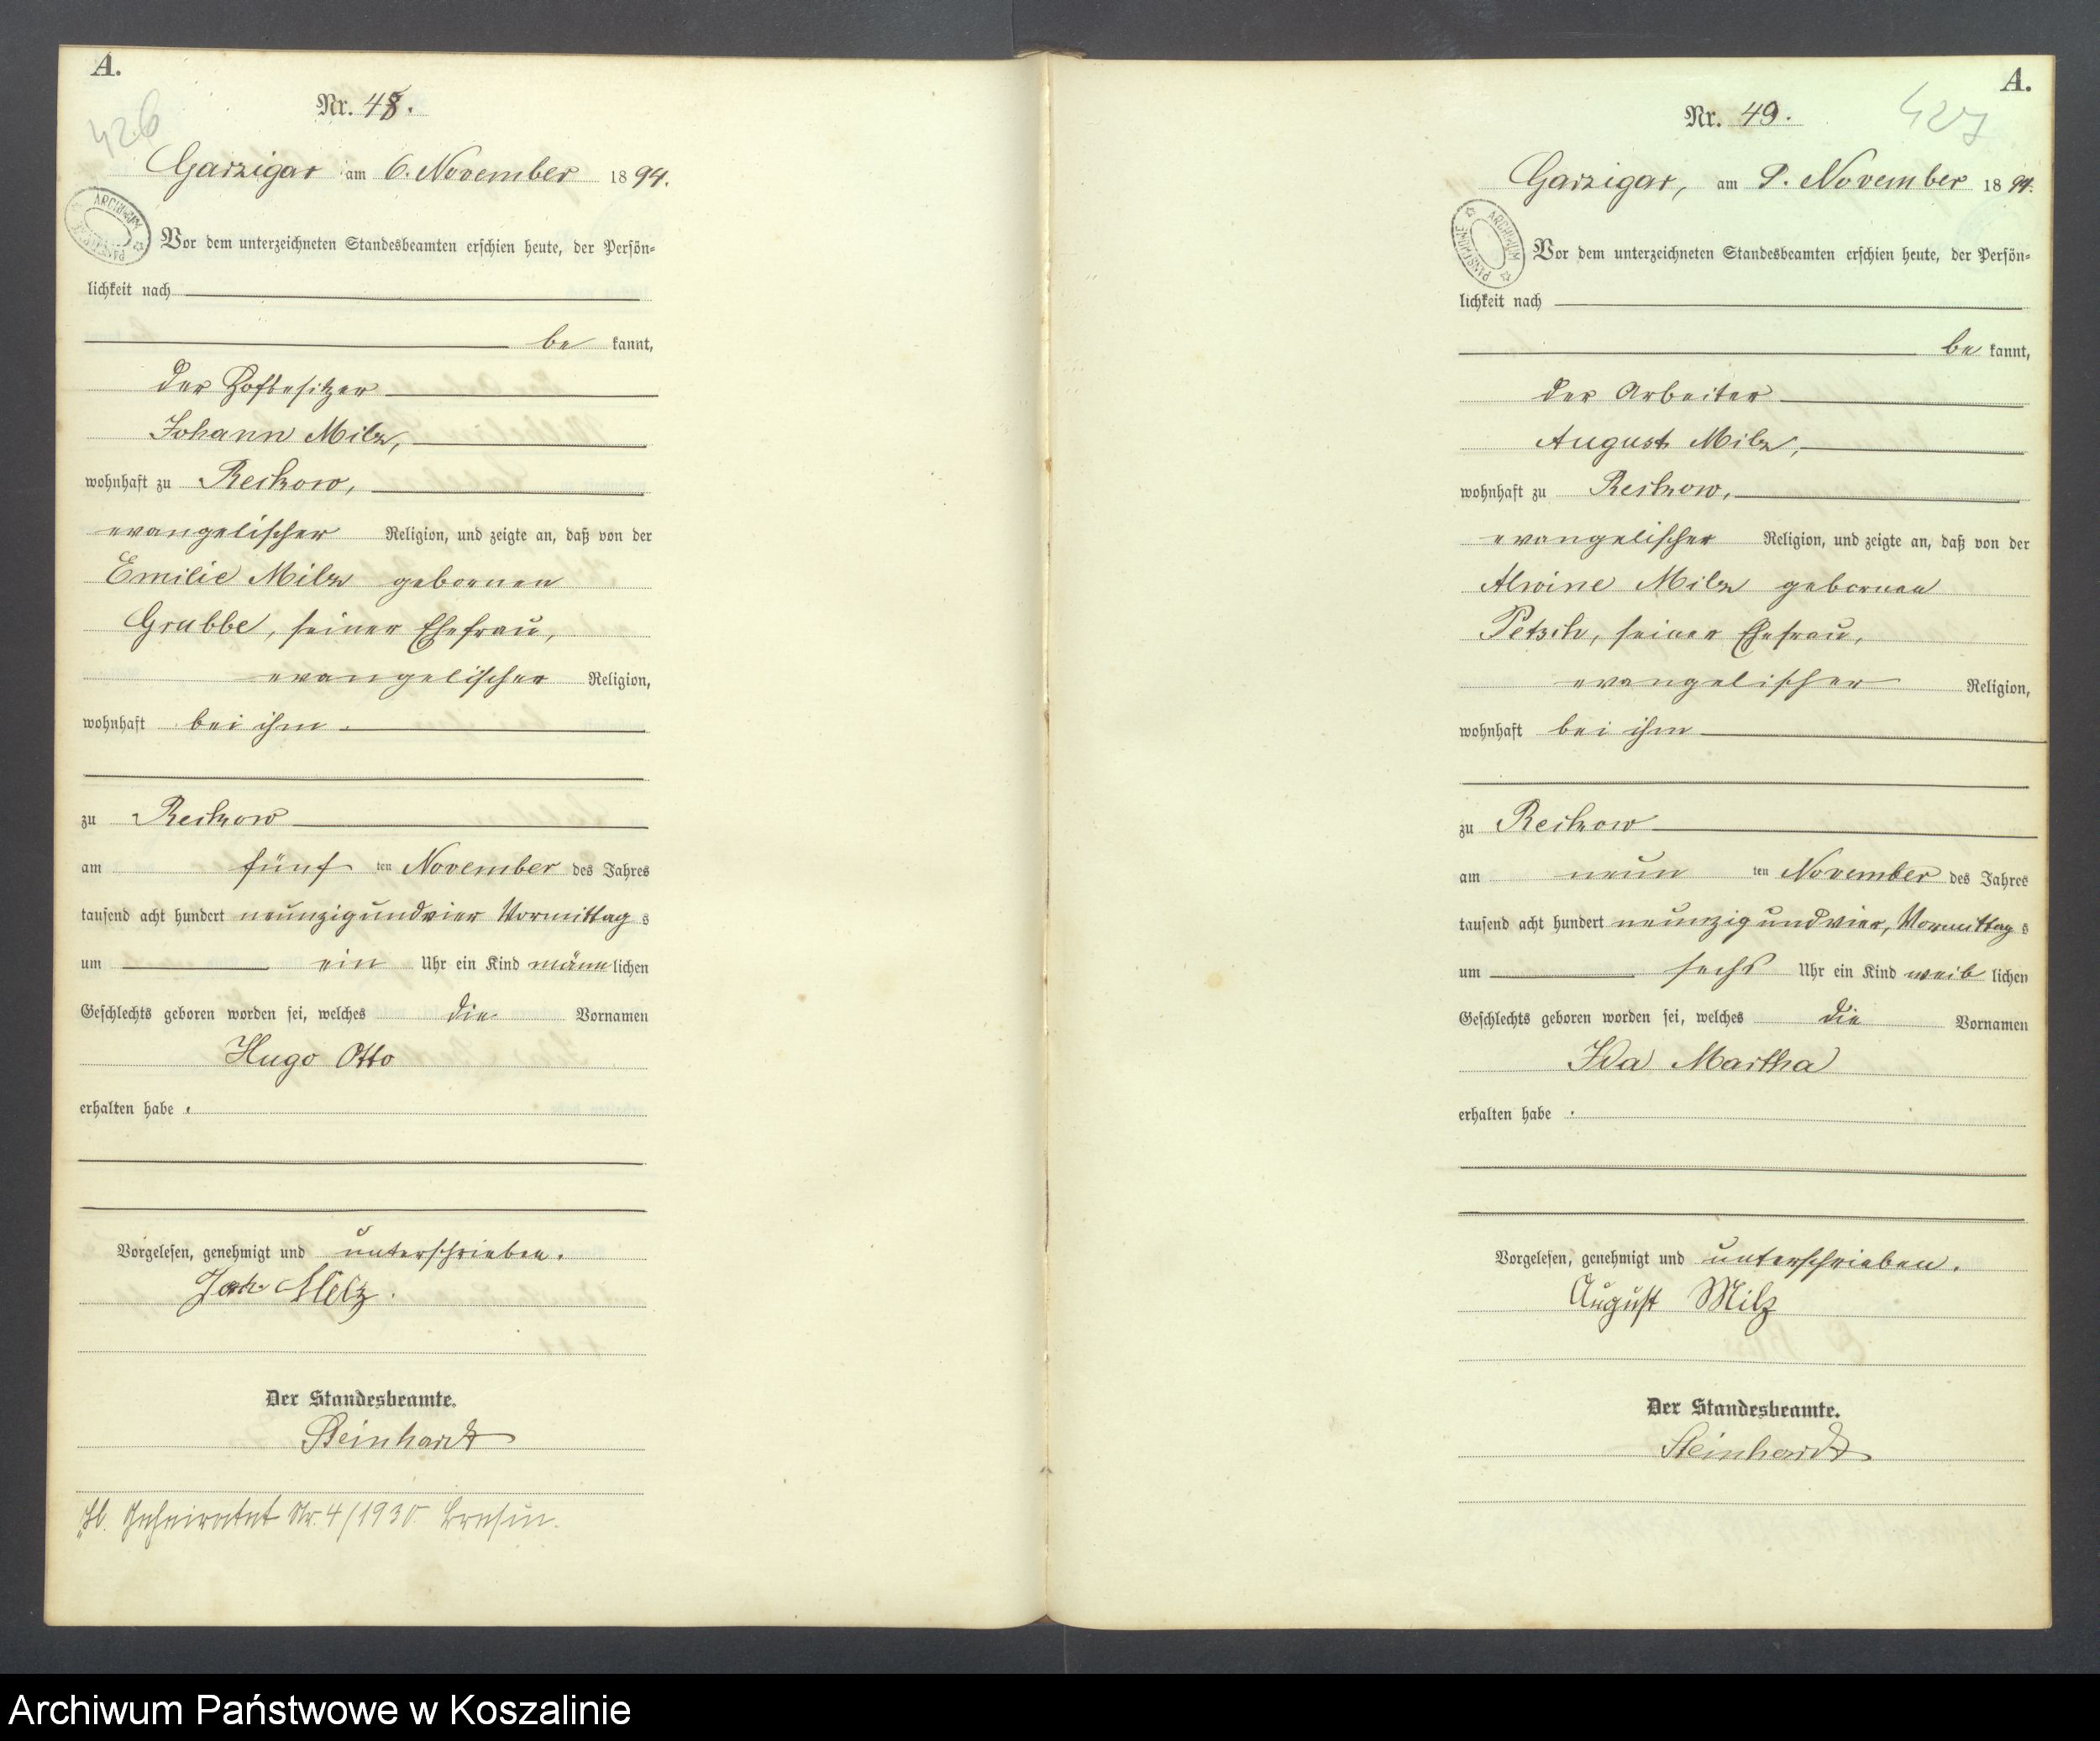 A.
426
Nr. 48.
Garzigar am 6. November 1894.
ARCHIWUM PAŃSTWOWE
Vor dem unterzeichneten Standesbeamten erschien heute, der Persön-
lichkeit nach
be kannt,
der Hofbesitzer
Johann Milz,
wohnhaft zu Reckow,
evangelischer Religion, und zeigte an, daß von der
Emilie Milz gebornen
Grubbe, seiner Ehefrau,
evangelischer Religion,
wohnhaft bei ihm.
zu Reckow
am fünf ten November des Jahres
tausend acht hundert neunzigundvier Vormittag s
um ein Uhr ein Kind männlichen
Geschlechts geboren worden sei, welches die Vornamen
Hugo Otto
erhalten habe.
Vorgelesen, genehmigt und unterschrieben.
Joh. Milz.
Der Standesbeamte.
Steinhardt
Geheiratet Nr. 4/1930
A.
427
Nr. 49.
Garzigar, am 9. November 1894.
ARCHIWUM PAŃSTWOWE
Vor dem unterzeichneten Standesbeamten erschien heute, der Persön-
lichkeit nach
be kannt,
der Arbeiter
August Milz,
wohnhaft zu Reckow,
evangelischer Religion, und zeigte an, daß von der
Alwine Milz gebornen
Petzsch, seiner Ehefrau,
evangelischer Religion,
wohnhaft bei ihm
zu Reckow
am neun ten November des Jahres
tausend acht hundert neunzigundvier, Vormittag s
um sechs Uhr ein Kind weib lichen
Geschlechts geboren worden sei, welches die Vornamen
Ida Martha
erhalten habe.
Vorgelesen, genehmigt und unterschrieben.
August Milz
Der Standesbeamte.
Steinhardt
Archiwum Państwowe w Koszalinie